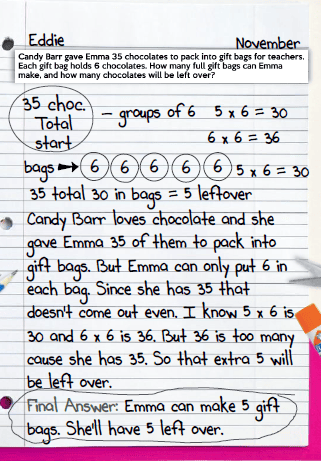 Eddie November
Candy Barr gave Emma 35 chocolates to pack into gift bags for teachers.
Each gift bag holds 6 chocolates. How many full gift bags can Emma
make, and how many chocolates will be left over?
35 choc.
Total
start
- groups of 6 5 x 6 = 30
6 x 6 = 36
bags → 6 6 6 6 6 5 x 6 = 30
35 total 30 in bags = 5 leftover
Candy Barr loves chocolate and she
gave Emma 35 of them to pack into
gift bags. But Emma can only put 6 in
each bag. Since she has 35 that
doesn't come out even. I know 5 x 6 is
30 and 6 x 6 is 36. But 36 is too many
cause she has 35. So that extra 5 will
be left over.
Final Answer: Emma can make 5 gift
bags. She'll have 5 left over.